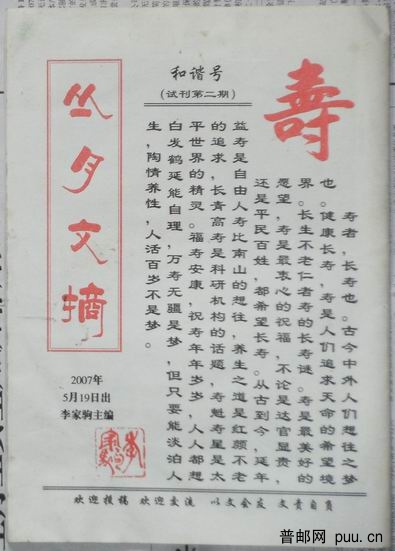 丛月文摘
和谐号
(试刊第二期)
寿
寿者，长寿也。古今中外人们想往之梦
也。健康长寿，寿是人们追求天命的希望境
界。长生不老仁者寿的长寿谜。寿是最美好的
愿望，寿是最衷心的祝福，不论是达官显贵，
还是平民百姓，都希望长寿。从古到今，延年
益寿是自由人寿比南山的想往，养生之道是红颜不老
的追求，长青高寿是科研机构的话题，寿魁寿星是太
平世界的精灵。福寿安康，祝寿年年岁岁，人人都想
白发鹤延能自理，万寿无疆是梦，但只要能淡泊人
生，陶情养性，人活百岁不是梦。
2007年
5月19日出
李家驹主编
欢迎投稿 欢迎交流 以文会友 文责自负
普邮网 puu.cn